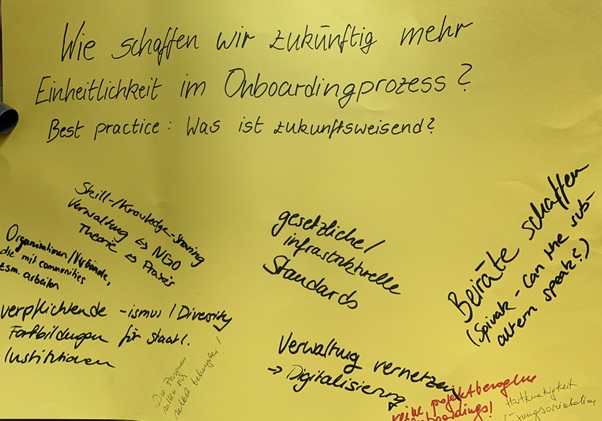 Wie schaffen wir zukünftig mehr
Einheitlichkeit im Onboardingprozess?
Best practice: Was ist zukunftsweisend?
Skill-/Knowledge-Sharing
Verwaltung ⇔ NGO
Theorie ⇔ Praxis
Organisationen/Verbände,
die mit communities
zsm. arbeiten
verpflichtende -ismus / Diversity
Fortbildungen für staatl.
Institutionen
gesetzliche/
infrastrukturelle
Standards
Verwaltung vernetzen
→ Digitalisierung
Beiräte schaffen
(Spivak - Can the sub-
altern speak?)
Die Personen
sollen sich
selbst
keine projektbezogene
Onboardings!
Hartnäckigkeit